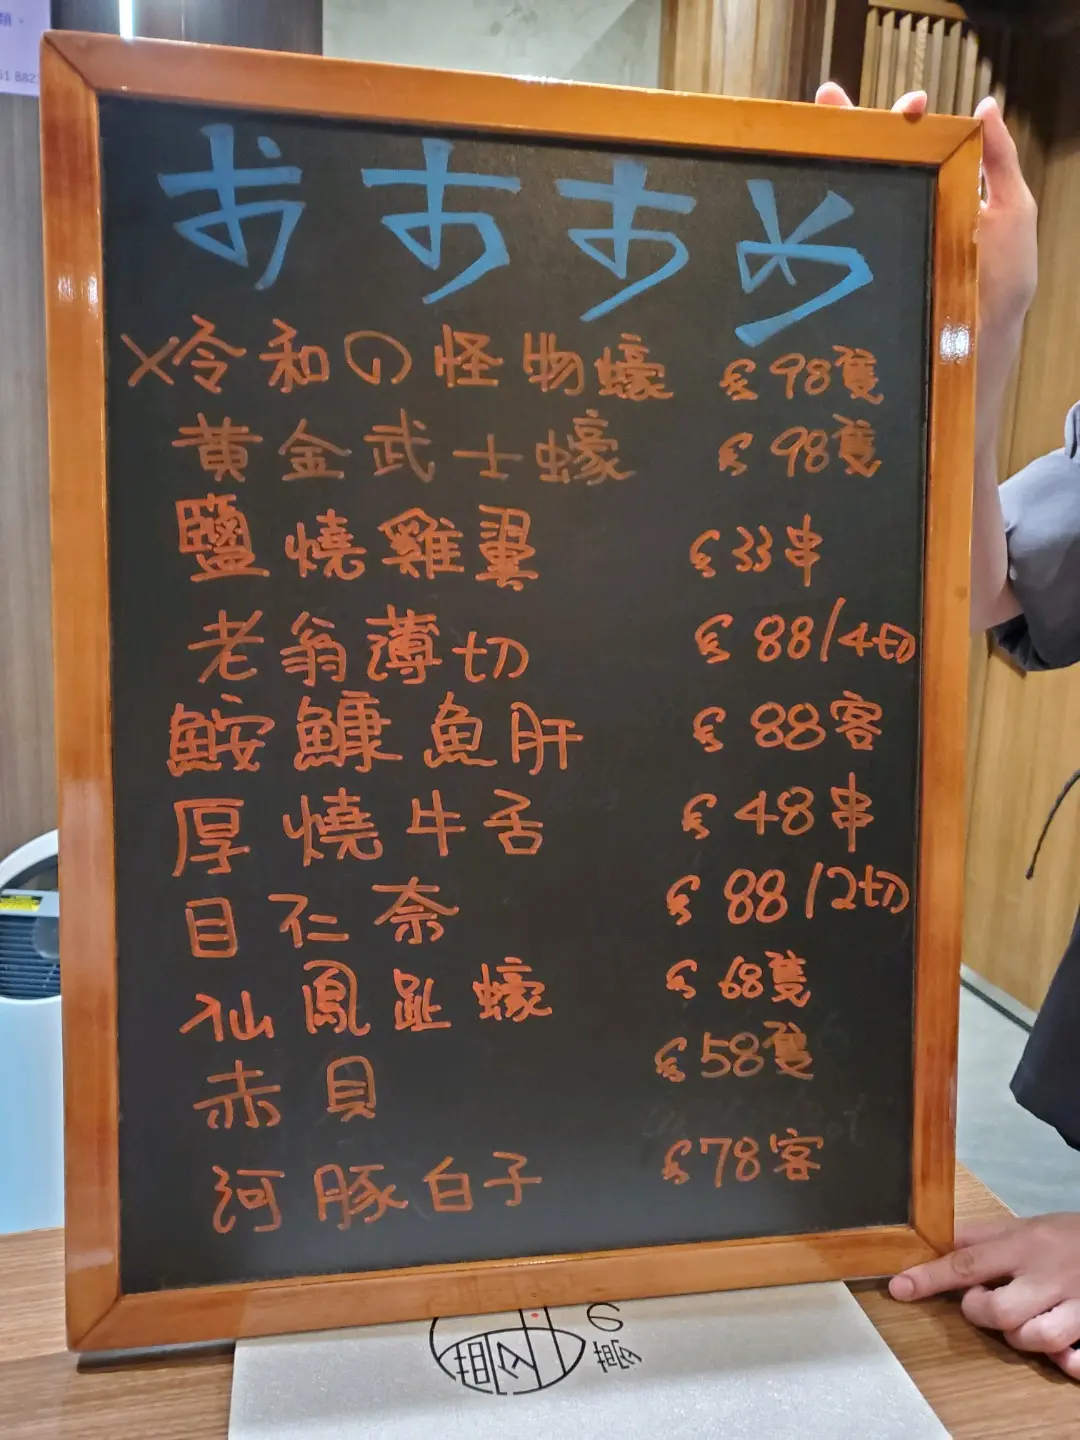 おすすめ
×令和の怪物蠔 $98隻
黄金武士蠔 $98隻
鹽燒雞翼 $33串
老翁薄切 $88/4切
鮟鱇魚肝 $88客
厚燒牛舌 $48串
目仁奈 $88/2切
仙鳳趾蠔 $68隻
赤貝 $58隻
河豚白子 $78客